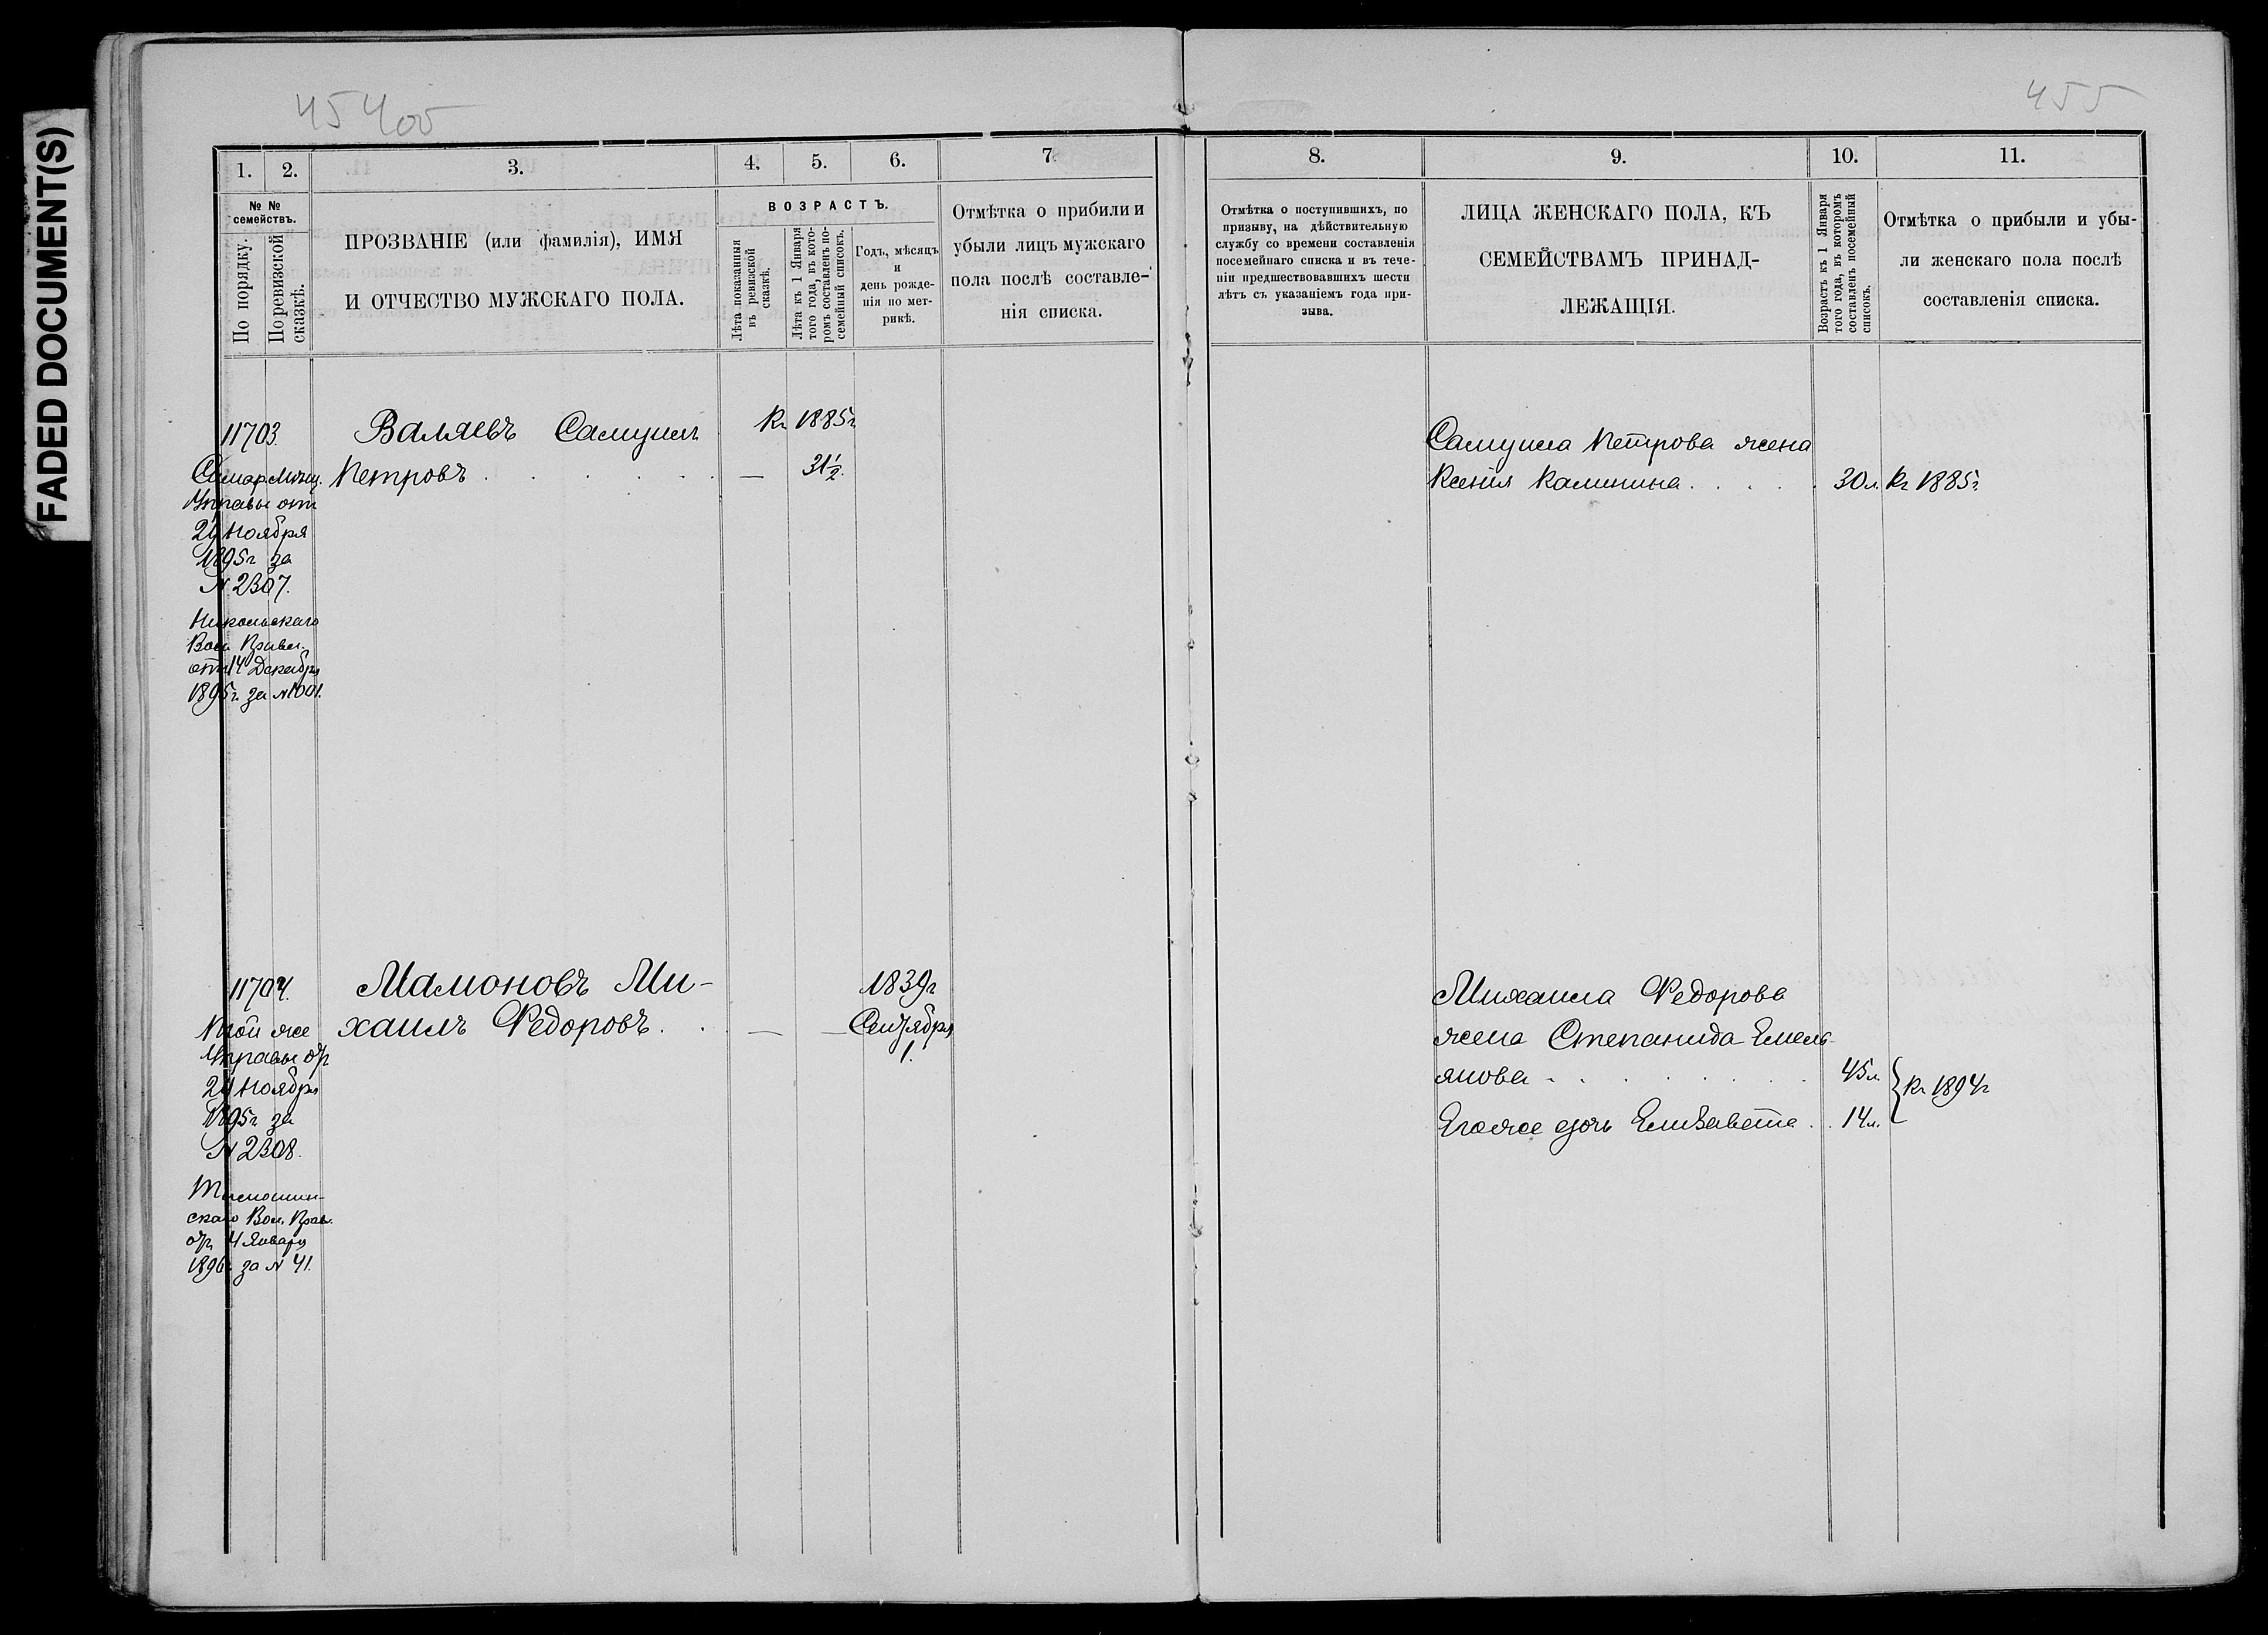 FADED DOCUMENT(S)
455
1. 2. 3. 4. 5. 6. 7.
№ №
семействъ.
По порядку.
По ревизской
сказкѣ.
ПРОЗВАНІЕ (или фамилія), ИМЯ
И ОТЧЕСТВО МУЖСКАГО ПОЛА.
ВОЗРАСТЪ.
Лѣта показанныя
въ ревизской
сказкѣ.
Лѣта къ 1 Января
того года, въ кото-
ромъ составленъ по-
семейный списокъ.
Годъ, мѣсяцъ
и
день рожде-
нія по мет-
рикѣ.
Отмѣтка о прибыли и
убыли лицъ мужскаго
пола послѣ составле-
нія списка.
11703.
Самар. Мѣщ.
Управы отъ
24 Ноября
1895 г за
№ 2307.
Никольскаго
Вол. Правл.
отъ 14 Декабря
1895 г. за № 1001.
Валяевъ Самуилъ
Петровъ . . . . . —
Къ 1885 г
31½.
11704.
Той же
Управы отъ
24 Ноября
1895 г за
№ 2308.
скаго Вол. Прав.
отъ 4 Января
1896 г. за № 41.
Мамоновъ Ми-
хаилъ Федоровъ . . — —
1839 г
Сентября
1.
8. 9. 10. 11.
Отмѣтка о поступившихъ, по
призыву, на дѣйствительную
службу со времени составленія
посемейнаго списка и въ тече-
ніи предшествовавшихъ шести
лѣтъ съ указаніемъ года при-
зыва.
ЛИЦА ЖЕНСКАГО ПОЛА, КЪ
СЕМЕЙСТВАМЪ ПРИНАД-
ЛЕЖАЩІЯ.
Возрастъ къ 1 Января
того года, въ которомъ
составленъ посемейный
списокъ.
Отмѣтка о прибыли и убы-
ли женскаго пола послѣ
составленія списка.
Самуила Петрова жена
Ксенія Калинина . . . . . 30 л. Къ 1885 г.
Михаила Федорова
жена Степанида Емель-
янова - . . . . . . 45 л.
Къ 1894 г
Его же дочь Елизавета . . 14 л.